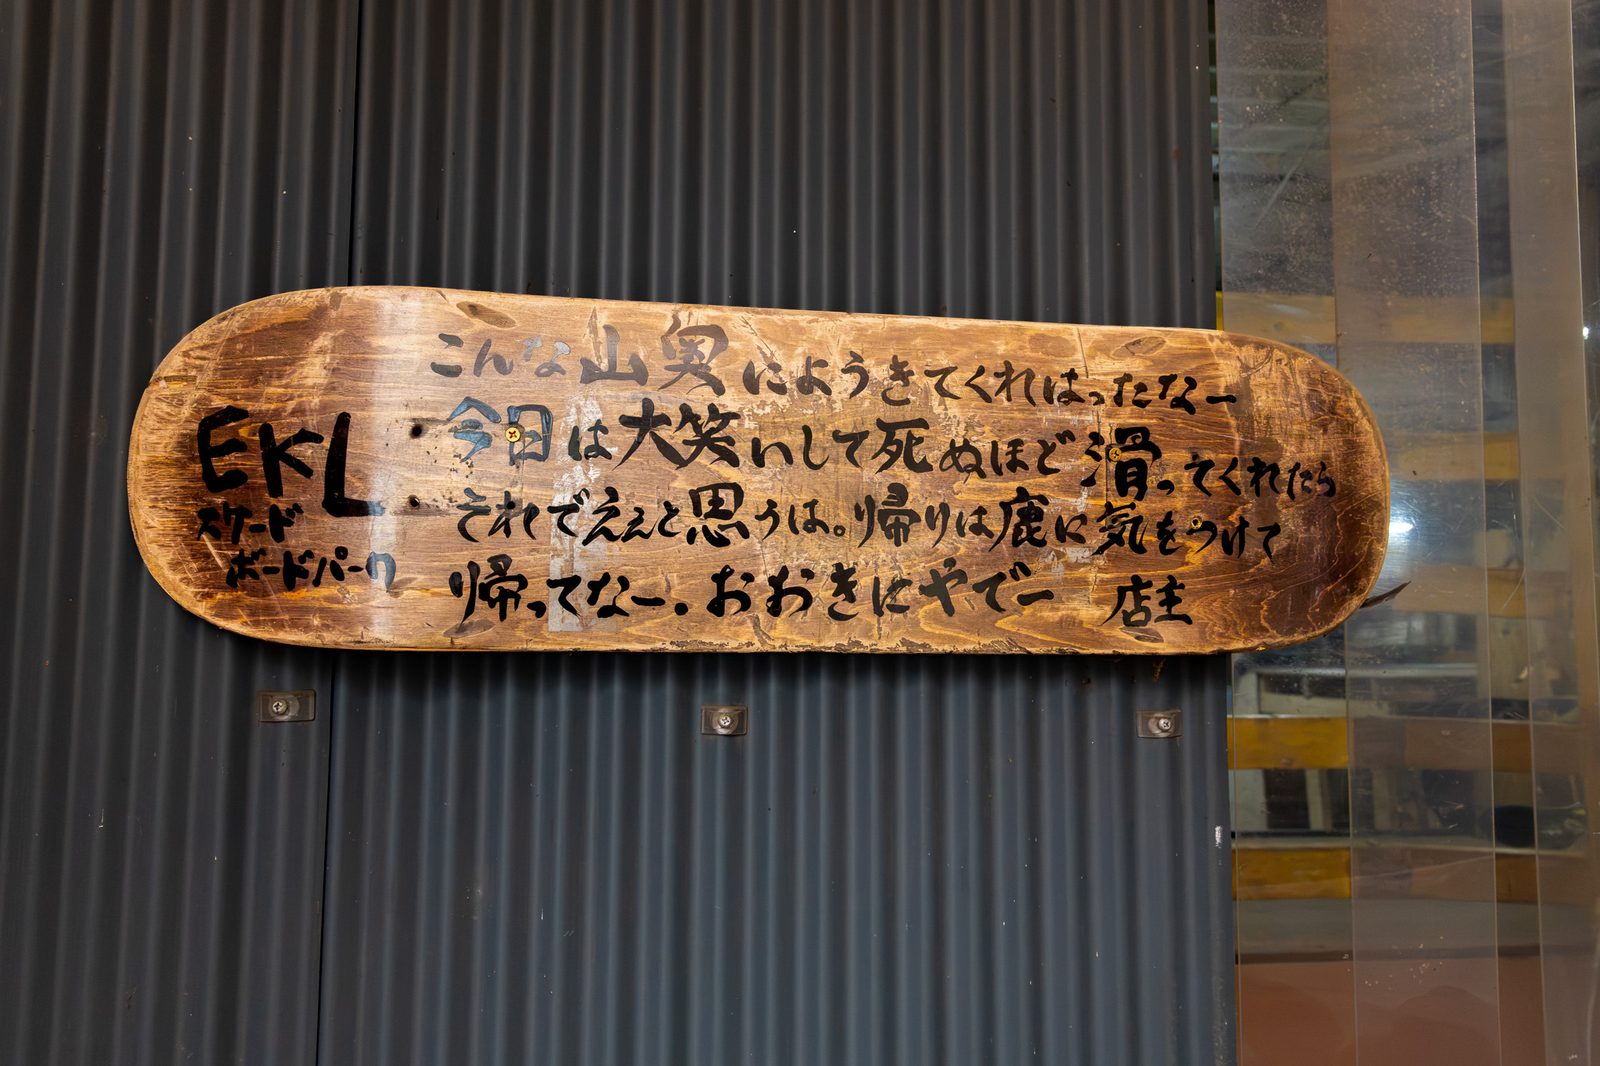 EKL
スケード
ボードパーク
こんな山奥にようきてくれはったなー
今日は大笑いして死ぬほど滑ってくれたら
それでええと思うは。帰りは鹿に気をつけて
帰ってなー。おおきにやでー 店主